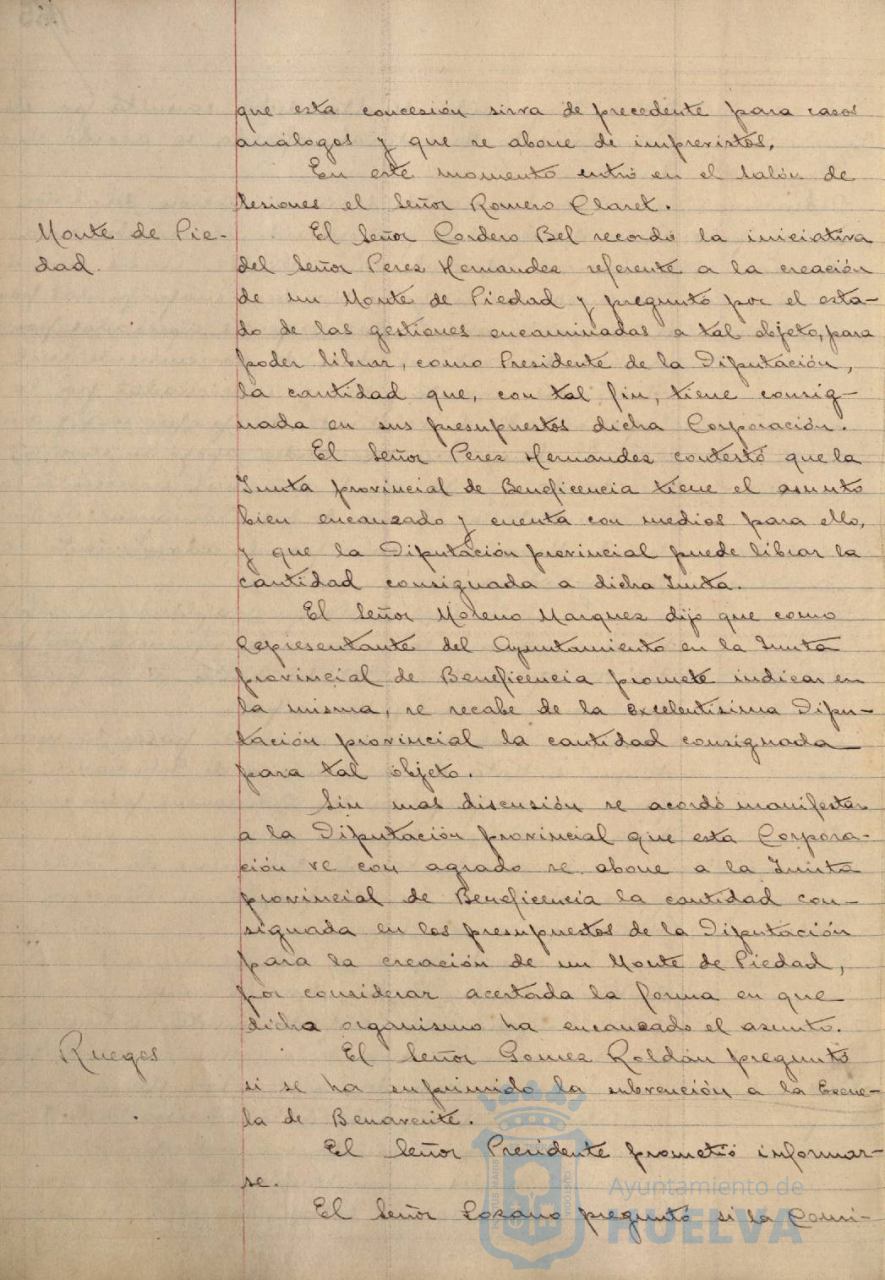 que esta concesión sirva de precedente para casos
análogos y que se abone de imprevistos.
En este momento entró en el Salón de
Sesiones el Señor Romero Claret.
Monte de Pie-
dad.
El Señor Cordero Bel recordó la iniciativa
del Señor Perez Hernandez referente a la creación
de un Monte de Piedad y preguntó por el esta-
do de las gestiones encaminadas a tal objeto, para
poder librar, como Presidente de la Diputación,
la cantidad que, con tal fin, tiene consig-
nada en sus presupuestos dicha Corporación.
El Señor Perez Hernandez contestó que la
Junta provincial de Beneficencia tiene el asunto
bien encauzado y cuenta con medios para ello,
y que la Diputación provincial puede librar la
cantidad consignada a dicha Junta.
El Señor Moreno Marquez dijo que como
Representante del Ayuntamiento en la Junta
provincial de Beneficencia promete indicar en
la misma, se recabe de la Excelentísima Dipu-
tación provincial la cantidad consignada
para tal objeto.
Sin mas discusión se acordó manifestar
a la Diputación provincial que esta Corpora-
ción ve con agrado se abone a la Junta
provincial de Beneficencia la cantidad con-
signada en los presupuestos de la Diputación
para la creación de un Monte de Piedad,
por considerar acertada la forma en que
dicho organismo ha encauzado el asunto.
Ruegos
El Señor Gomez Roldán preguntó
si se ha suprimido la subvención a la Escue-
la de Benavente.
El Señor Presidente prometió informar-
se.
El Señor Lozano preguntó si la Comi-
Ayuntamiento de
HUELVA